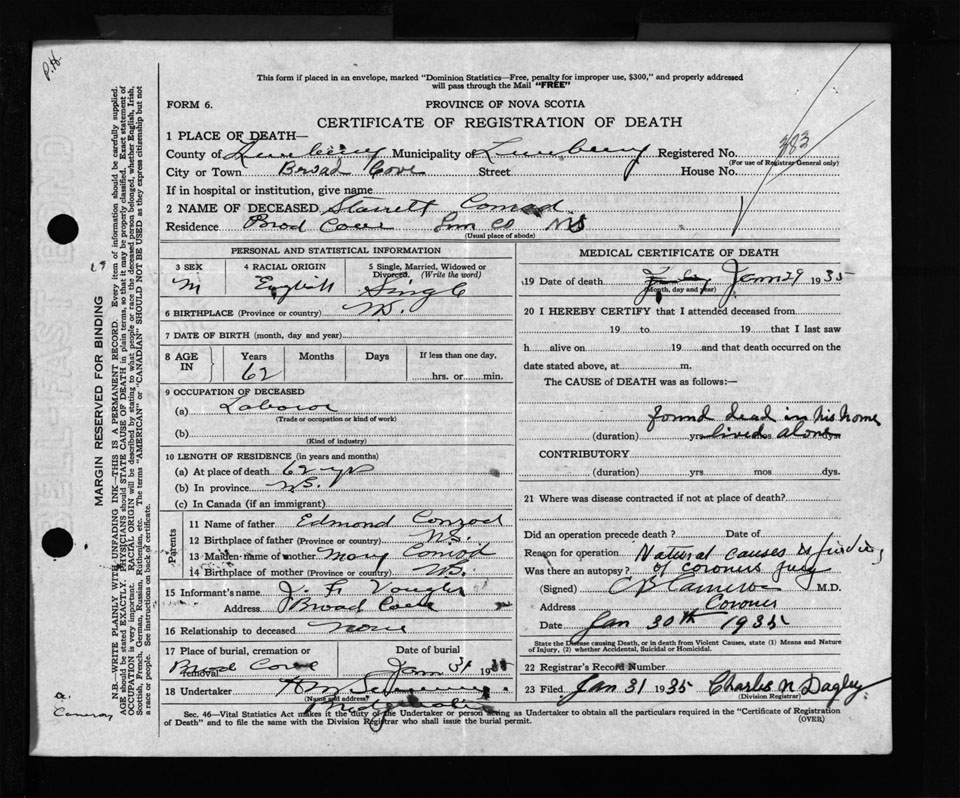 P.H.
This form if placed in an envelope, marked "Dominion Statistics—Free, penalty for improper use, $300," and properly addressed
will pass through the Mail "FREE"
FORM 6.
PROVINCE OF NOVA SCOTIA
CERTIFICATE OF REGISTRATION OF DEATH
1 PLACE OF DEATH—
County of Lunenburg Municipality of Lunenburg Registered No. 383
(For use of Registrar General only)
City or Town Broad Cove Street House No.
If in hospital or institution, give name
2 NAME OF DECEASED Starrett Conrad
Residence Brod Cove Lun Co NS
(Usual place of abode)
PERSONAL AND STATISTICAL INFORMATION
3 SEX 4 RACIAL ORIGIN 5 Single, Married, Widowed or Divorced. (Write the word)
M English Single
6 BIRTHPLACE (Province or country) NS.
7 DATE OF BIRTH (month, day and year)
8 AGE IN Years Months Days If less than one day,
62 hrs. or min.
9 OCCUPATION OF DECEASED
(a) Laborer
(Trade or occupation or kind of work)
(b)
(Kind of industry)
10 LENGTH OF RESIDENCE (in years and months)
(a) At place of death 62 yrs
(b) In province NS.
(c) In Canada (if an immigrant)
Parents
11 Name of father Edmond Conrod
12 Birthplace of father (Province or country) NS.
13 Maiden name of mother Mary Conrod
14 Birthplace of mother (Province or country) NS.
15 Informant's name J. F.
Address Broad Cove
16 Relationship to deceased none
17 Place of burial, cremation or removal Date of burial
Brod Cove Jan 31 1935
18 Undertaker
(Name and address)
Bridgewater
MEDICAL CERTIFICATE OF DEATH
19 Date of death Jan 29 1935
(Month, day and year)
20 I HEREBY CERTIFY that I attended deceased from
19 to 19 that I last saw
h alive on 19 and that death occurred on the
date stated above, at m.
The CAUSE of DEATH was as follows:—
found dead in his home
(duration) yrs lived mos alone
CONTRIBUTORY
(duration) yrs. mos. dys.
21 Where was disease contracted if not at place of death?
Did an operation precede death? Date of
Reason for operation Natural causes is finding
Was there an autopsy? of coroners jury
(Signed) Cameron M.D.
Address Coroner
Date Jan 30th 1935
State the Disease causing Death, or in death from Violent Causes, state (1) Means and Nature
of Injury, (2) whether Accidental, Suicidal or Homicidal.
22 Registrar's Record Number
23 Filed Jan 31 1935 Charles N Dagley
(Division Registrar)
Sec. 46—Vital Statistics Act makes it the duty of the Undertaker or person acting as Undertaker to obtain all the particulars required in the "Certificate of Registration
of Death" and to file the same with the Division Registrar who shall issue the burial permit.
(OVER)
MARGIN RESERVED FOR BINDING
N.B.—WRITE PLAINLY WITH UNFADING INK—THIS IS A PERMANENT RECORD. Every item of information should be carefully supplied.
AGE should be stated EXACTLY. PHYSICIANS should STATE CAUSE OF DEATH in plain terms, so that it may be properly classified. Exact statement of
OCCUPATION is very important. RACIAL ORIGIN will be described by stating to what people or race the deceased person belonged, whether English, Irish,
Scottish, French, German, Russian, Ruthenian, etc. The terms "AMERICAN" or "CANADIAN" SHOULD NOT BE USED as they express citizenship but not
a race or people. See instructions on back of certificate.
Cameron